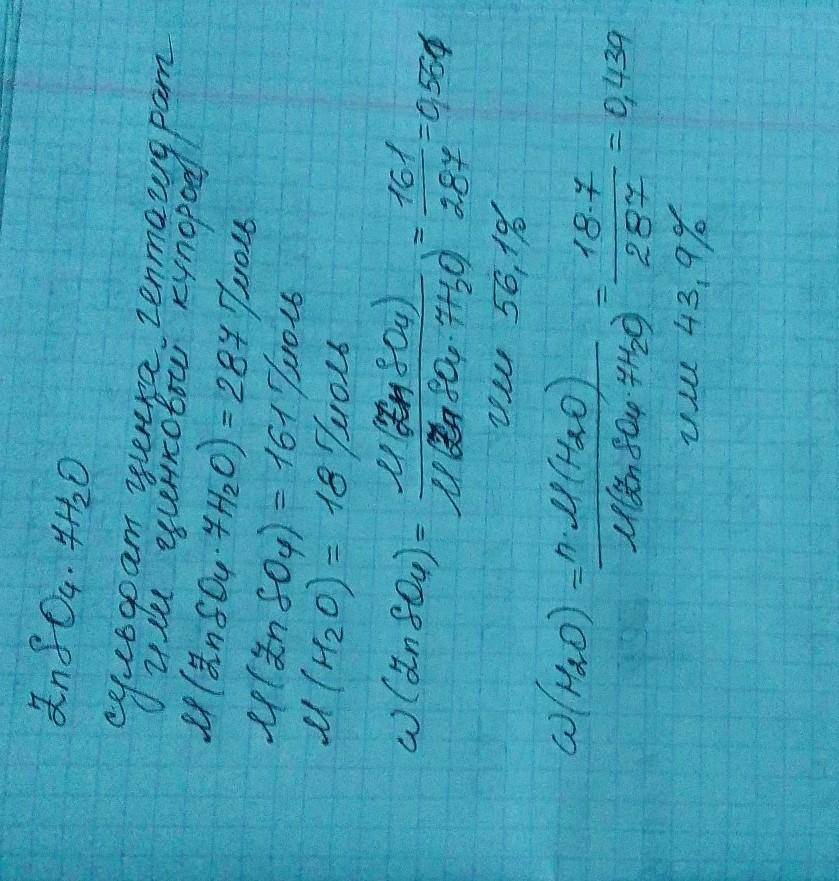 ZnSO₄·7H₂O
сульфат цинка гептагидрат
или цинковый купорос
M(ZnSO₄·7H₂O) = 287 г/моль
M(ZnSO₄) = 161 г/моль
M(H₂O) = 18 г/моль
ω(ZnSO₄) = M(ZnSO₄) / M(ZnSO₄·7H₂O) = 161 / 287 = 0,561
или 56,1%
ω(H₂O) = n·M(H₂O) / M(ZnSO₄·7H₂O) = 18·7 / 287 = 0,439
или 43,9%